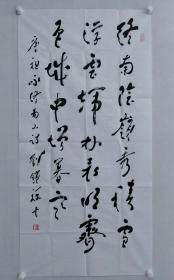 終南陰嶺秀積雪
浮雲端林表明霽
色城中增暮寒
唐祖咏終南山詩